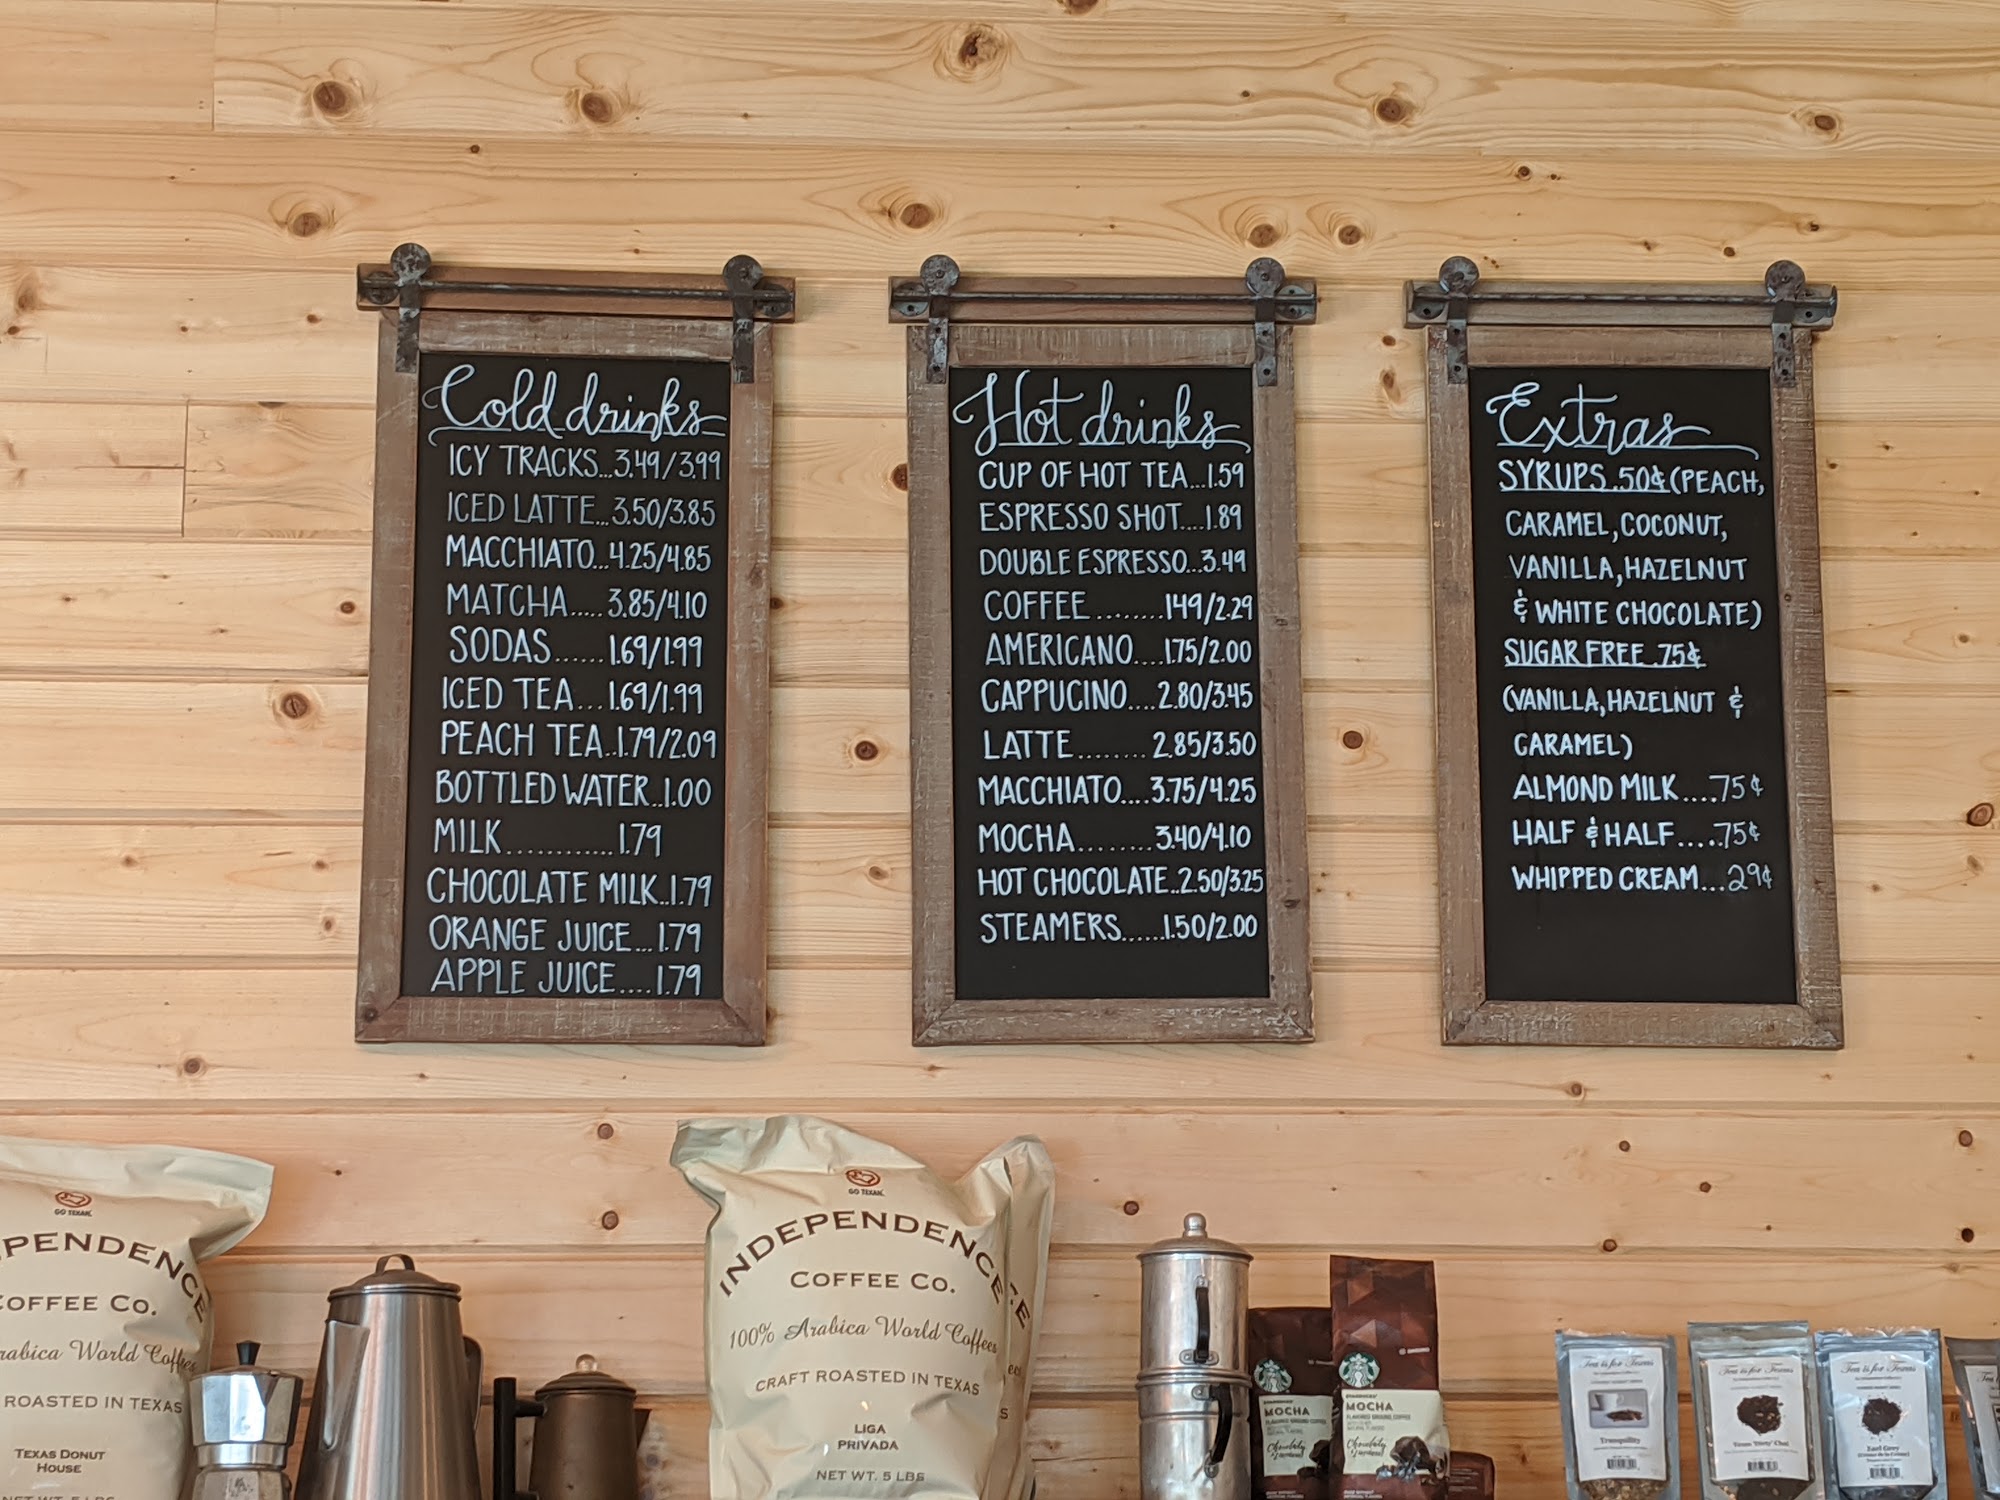 Cold drinks
ICY TRACKS...3.49/3.99
ICED LATTE...3.50/3.85
MACCHIATO...4.25/4.85
MATCHA..... 3.85/4.10
SODAS......1.69/1.99
ICED TEA...1.69/1.99
PEACH TEA..1.79/2.09
BOTTLED WATER..1.00
MILK............1.79
CHOCOLATE MILK..1.79
ORANGE JUICE...1.79
APPLE JUICE....1.79
Hot drinks
CUP OF HOT TEA...1.59
ESPRESSO SHOT....1.89
DOUBLE ESPRESSO...3.49
COFFEE........149/2.29
AMERICANO....1.75/2.00
CAPPUCINO...2.80/3.45
LATTE........ 2.85/3.50
MACCHIATO....3.75/4.25
MOCHA........3.40/4.10
HOT CHOCOLATE..2.50/3.25
STEAMERS......1.50/2.00
Extras
SYRUPS .50¢ (PEACH,
CARAMEL, COCONUT,
VANILLA, HAZELNUT
& WHITE CHOCOLATE)
SUGAR FREE .75¢
(VANILLA, HAZELNUT &
CARAMEL)
ALMOND MILK....75¢
HALF & HALF.....75¢
WHIPPED CREAM...29¢
GO TEXAN.
PENDENCE
COFFEE CO.
rabica World Coffees
ROASTED IN TEXAS
TEXAS DONUT
HOUSE
NET WT. 5 LBS
GO TEXAN.
INDEPENDENCE
COFFEE CO.
100% Arabica World Coffees
CRAFT ROASTED IN TEXAS
LIGA
PRIVADA
NET WT. 5 LBS
STARBUCKS
MOCHA
FLAVORED GROUND COFFEE
Chocolaty
STARBUCKS
MOCHA
FLAVORED GROUND COFFEE
Chocolaty
Tea is for Texas
Tranquility
Tea is for Texas
Tea is for Texas
Earl Grey